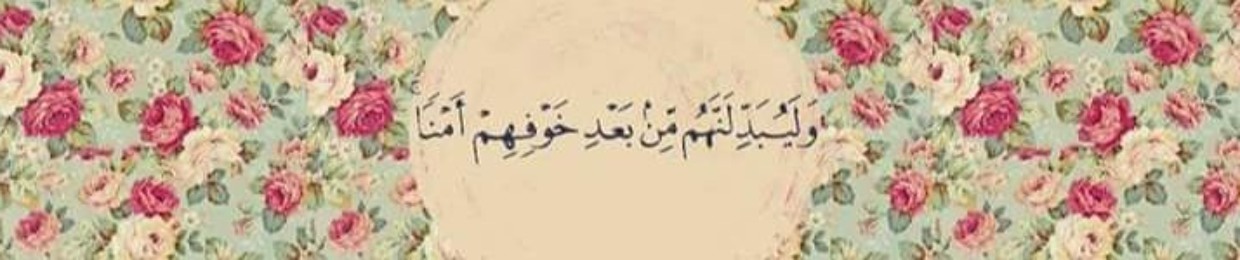 وَلَيُبَدِّلَنَّهُم مِّنۢ بَعْدِ خَوْفِهِمْ أَمْنًا